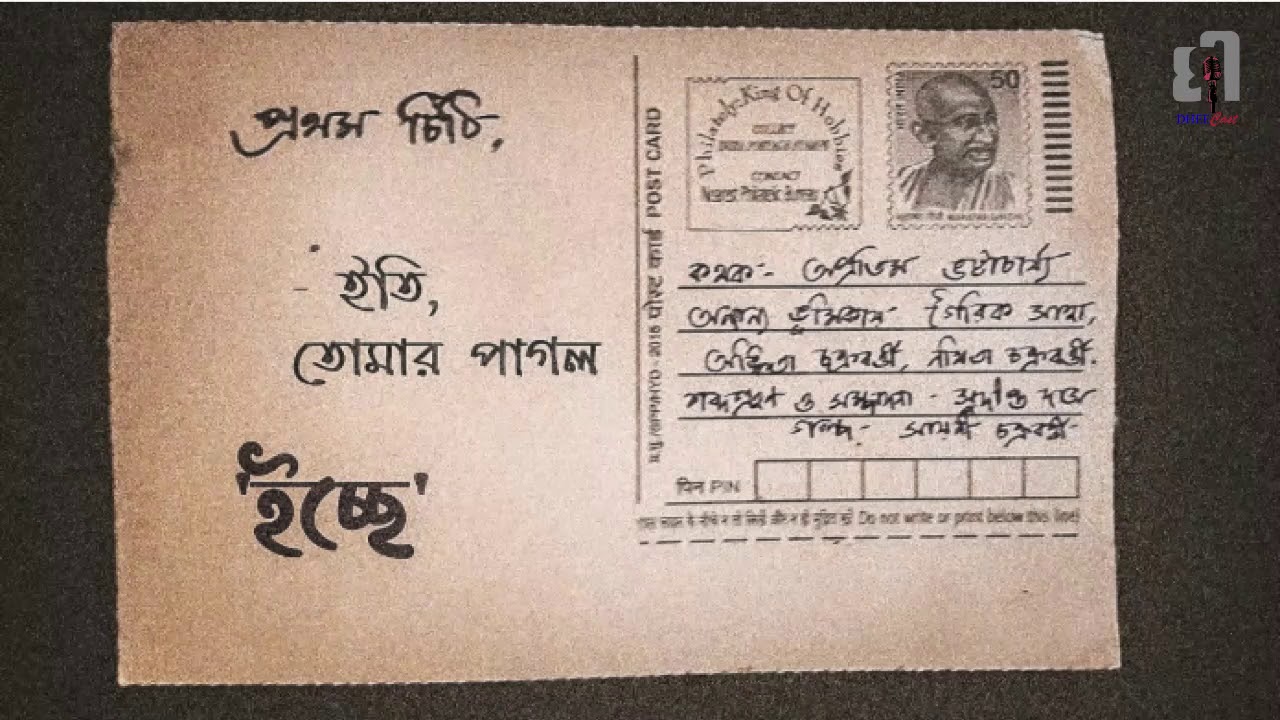 প্রথম চিঠি,
ইতি,
তোমার পাগল
'ইচ্ছে'
ম.মু./SPP/HYD - 2016 पोस्ट कार्ड POST CARD
Philately: King Of Hobbies
COLLECT
INDIA POSTAGE STAMPS
CONTACT
Nearest Philatelic Bureau
50
भारत INDIA
MAHATMA GANDHI
কথক:- অপ্রতিম ভট্টাচার্য্য
অন্যান্য ভূমিকায়- গৈরিক সাহা,
চক্রবর্ত্তী, চক্রবর্ত্তী.
শব্দগ্রহণ ও সম্পাদনা -
গল্প:- চক্রবর্ত্তী-
पिन PIN
Do not write or print below this line